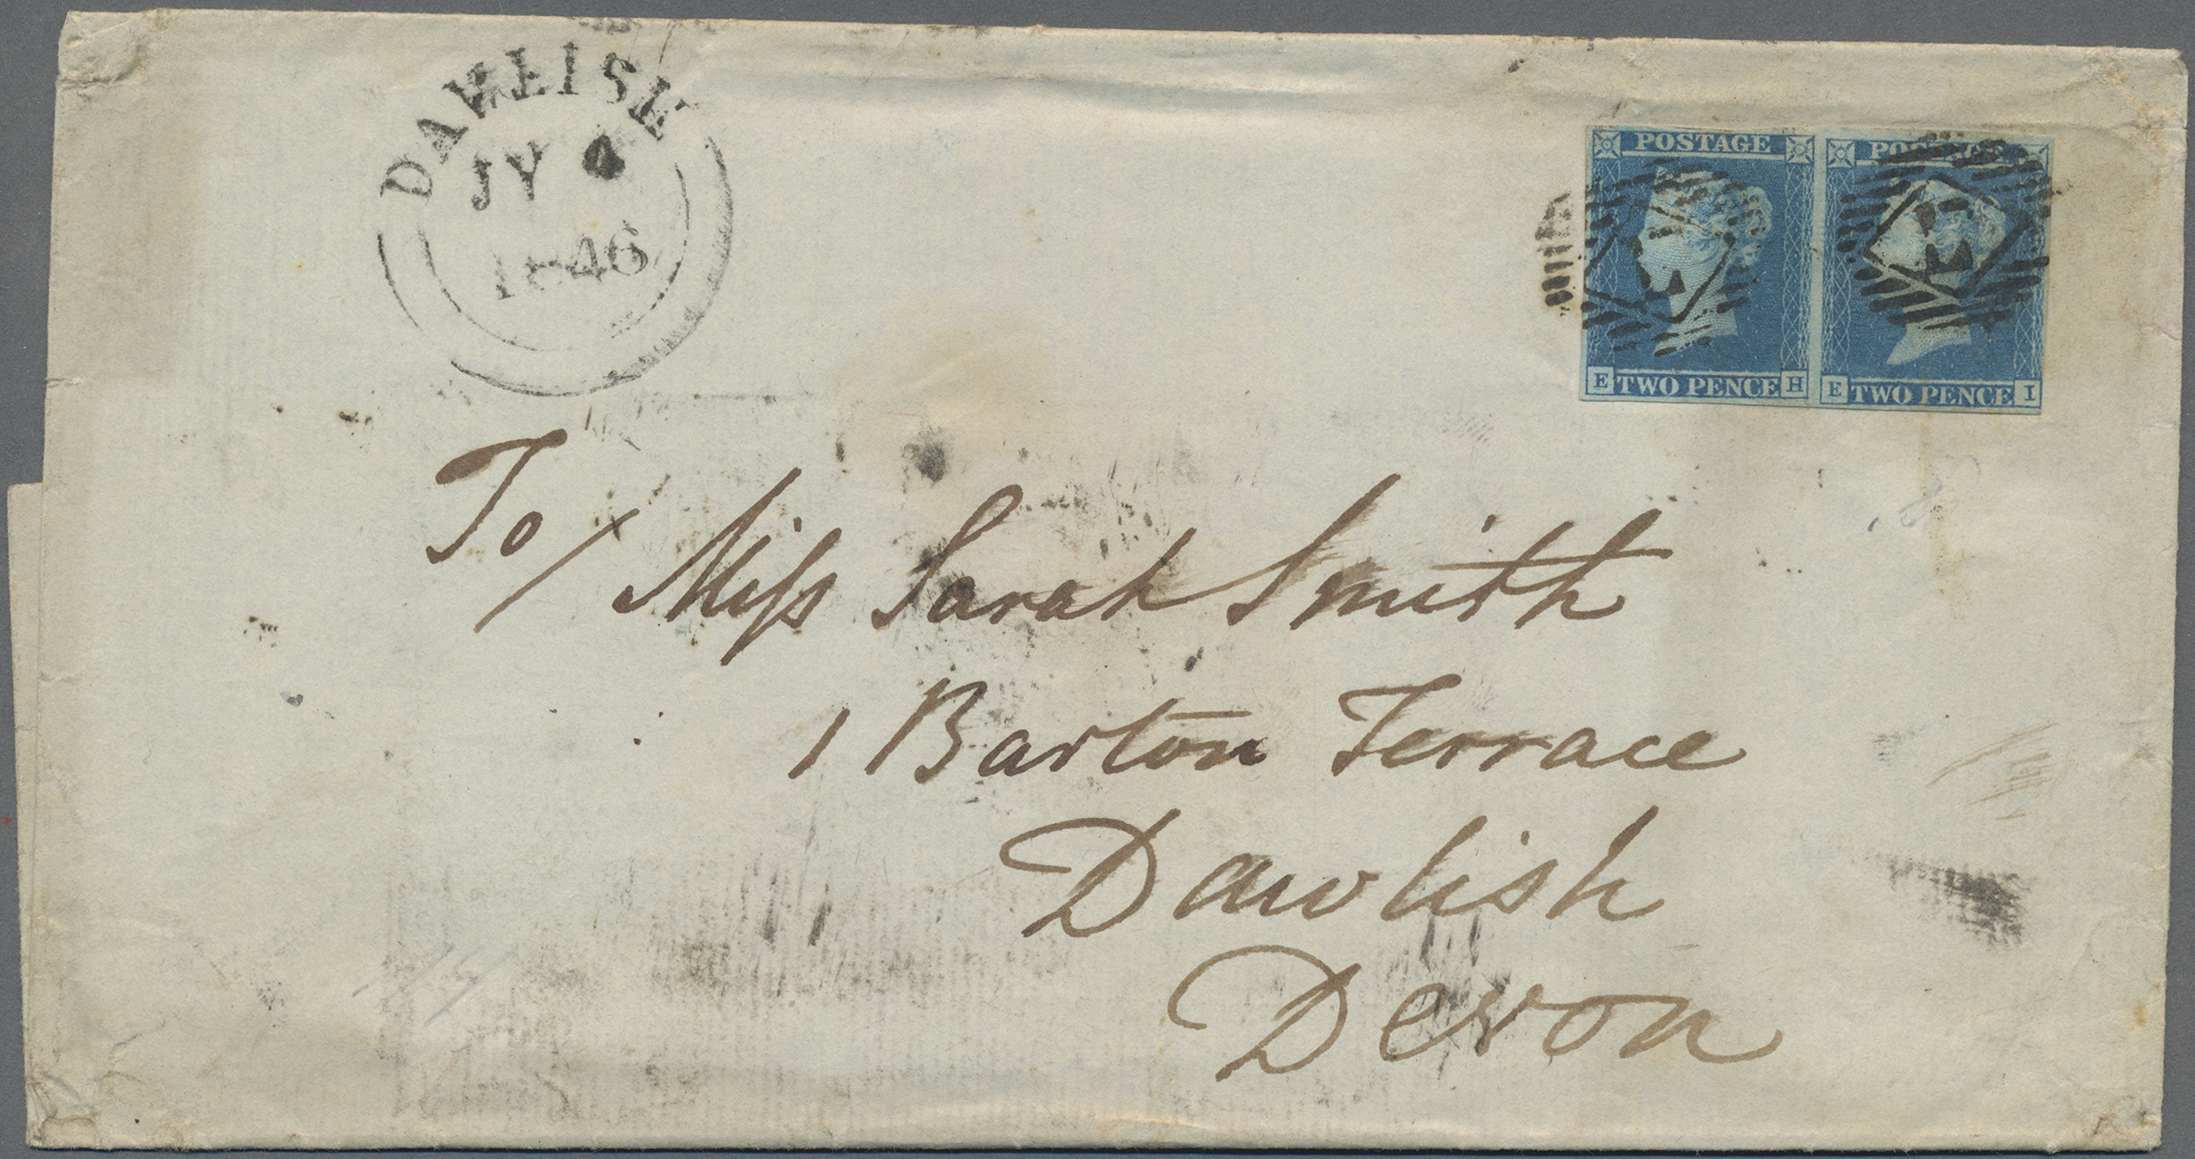 DAWLISH
JY 4
1846
POSTAGE POSTAGE
E TWO PENCE H E TWO PENCE I
To / Miss Sarah Smith
1 Barton Terrace
Dawlish
Devon